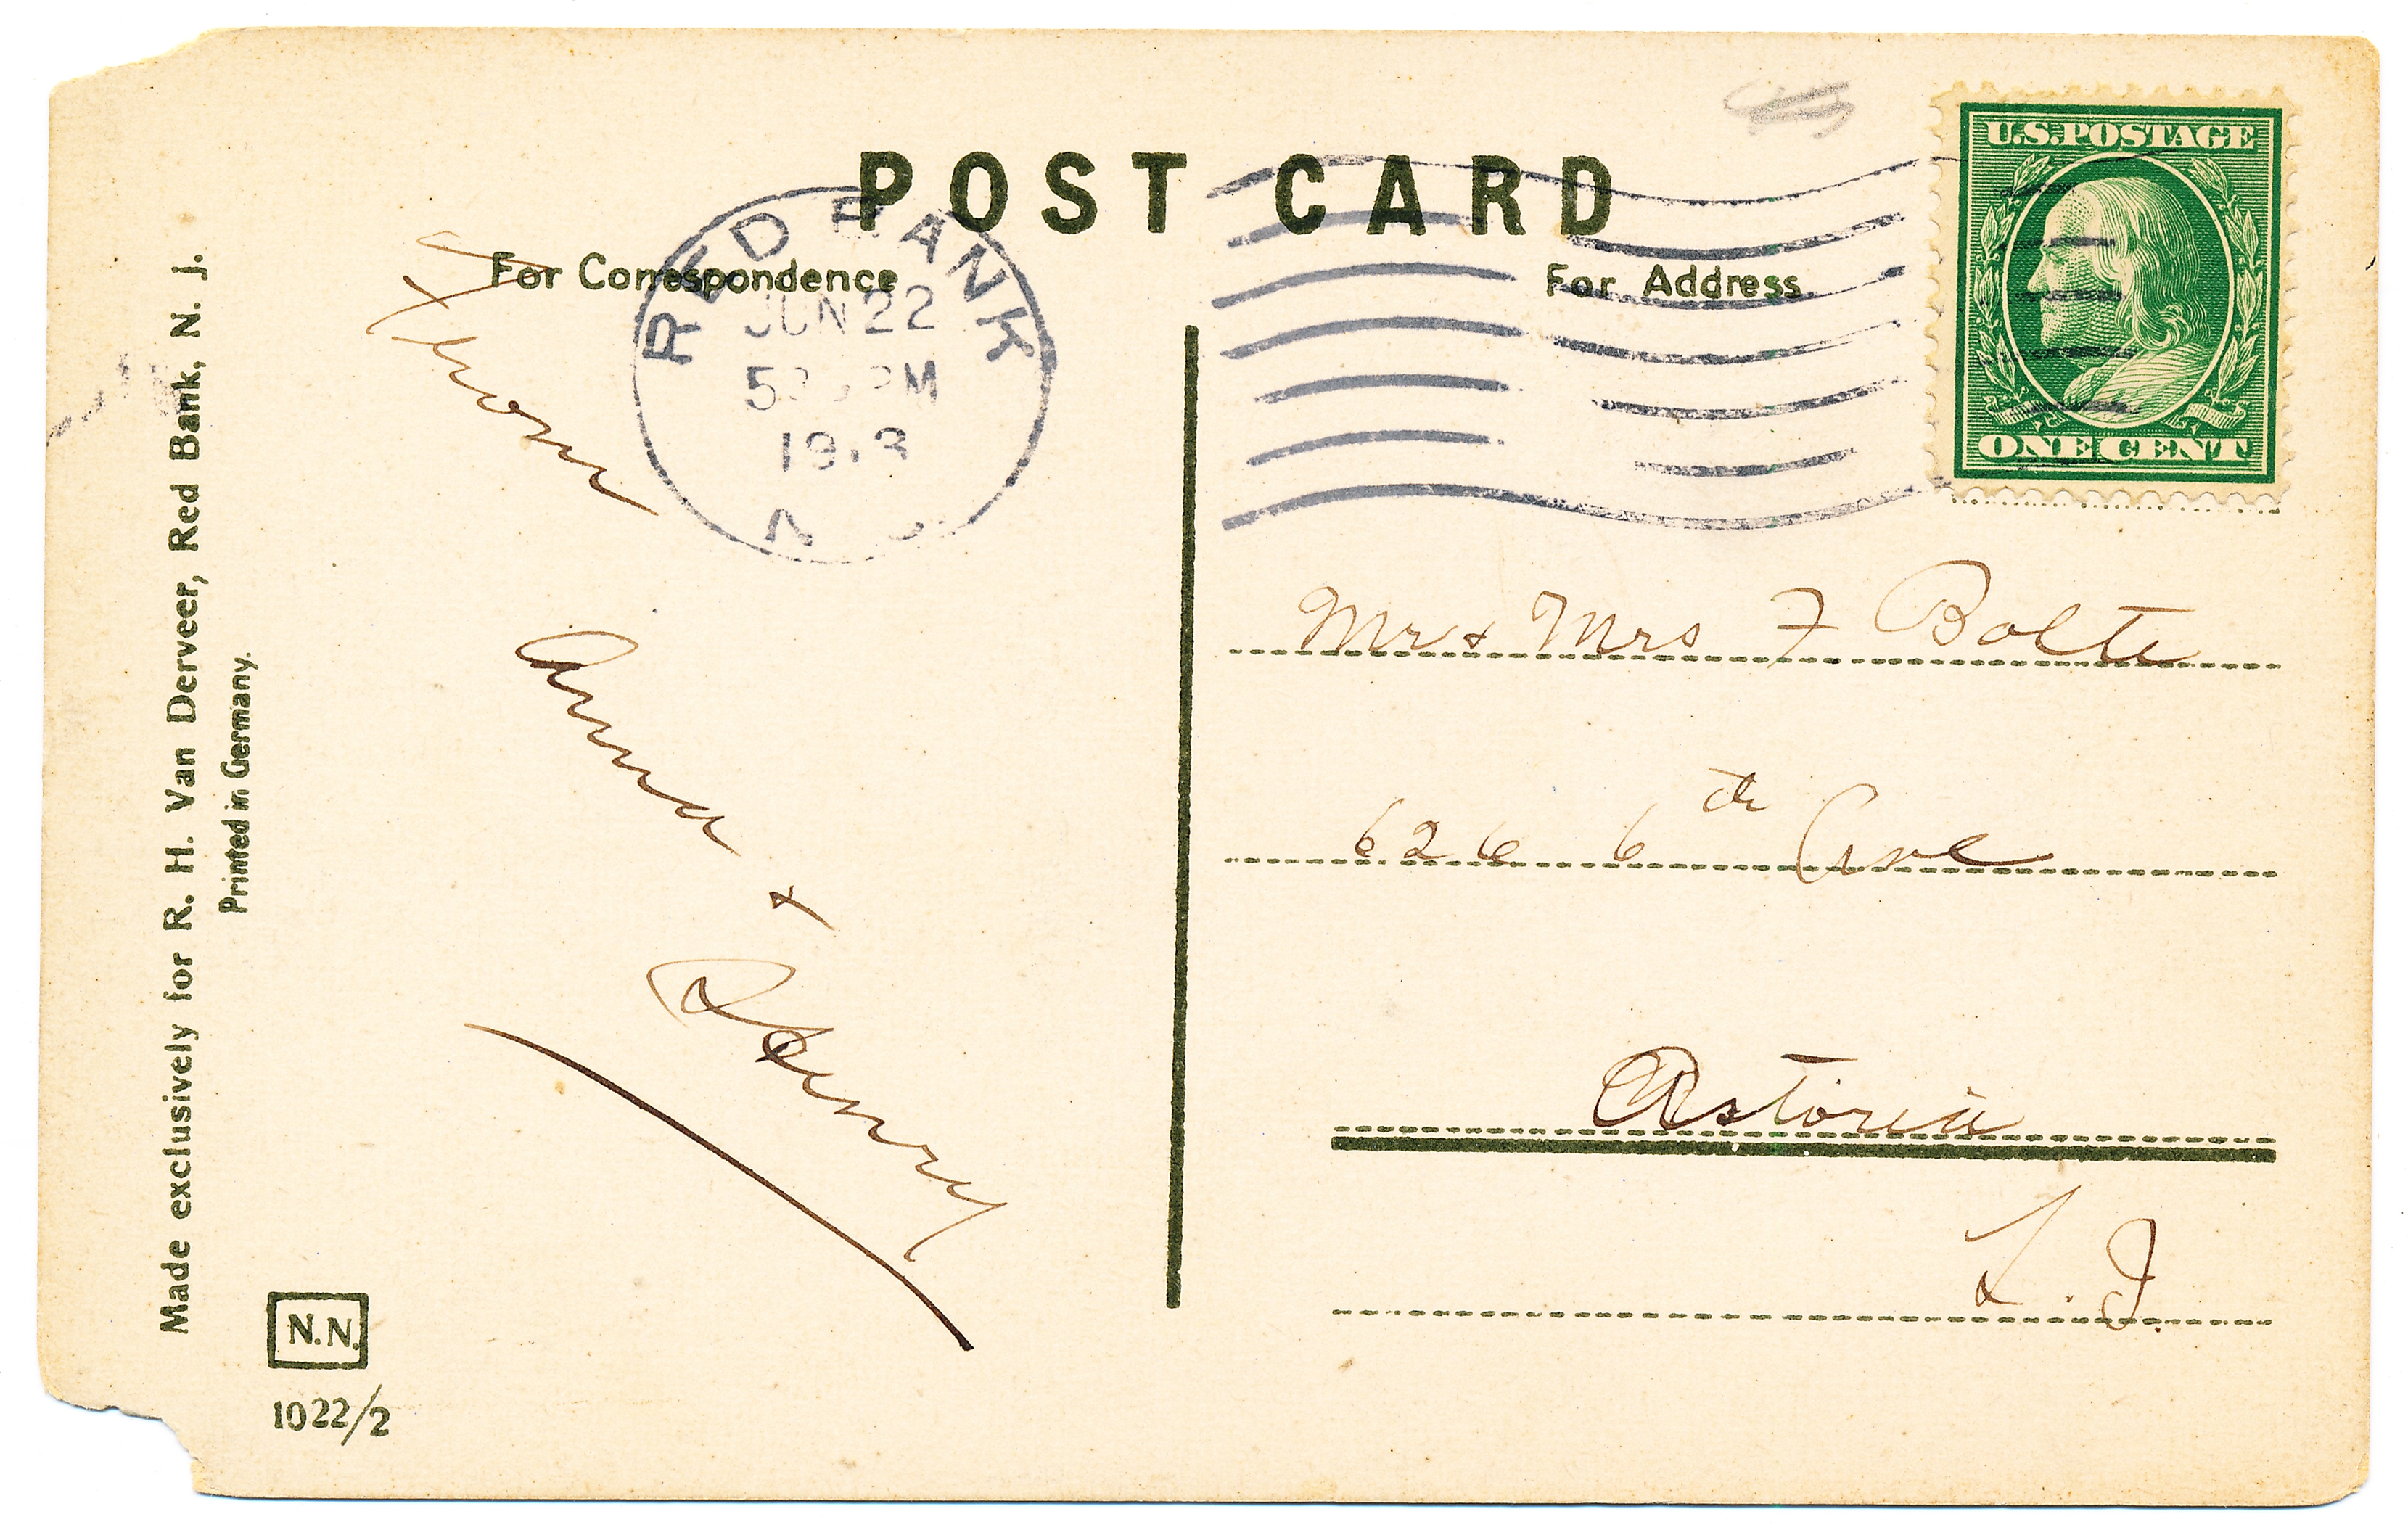 POST CARD
For Correspondence
For Address
U.S.POSTAGE
ONE CENT
RED BANK
JUN 22
PM
1913
N J
From
Anna +
Henry
Mr + Mrs F Bolte
626 6th Ave
Astoria
L. I.
Made exclusively for R. H. Van Derveer, Red Bank, N. J.
Printed in Germany.
N.N.
1022/2